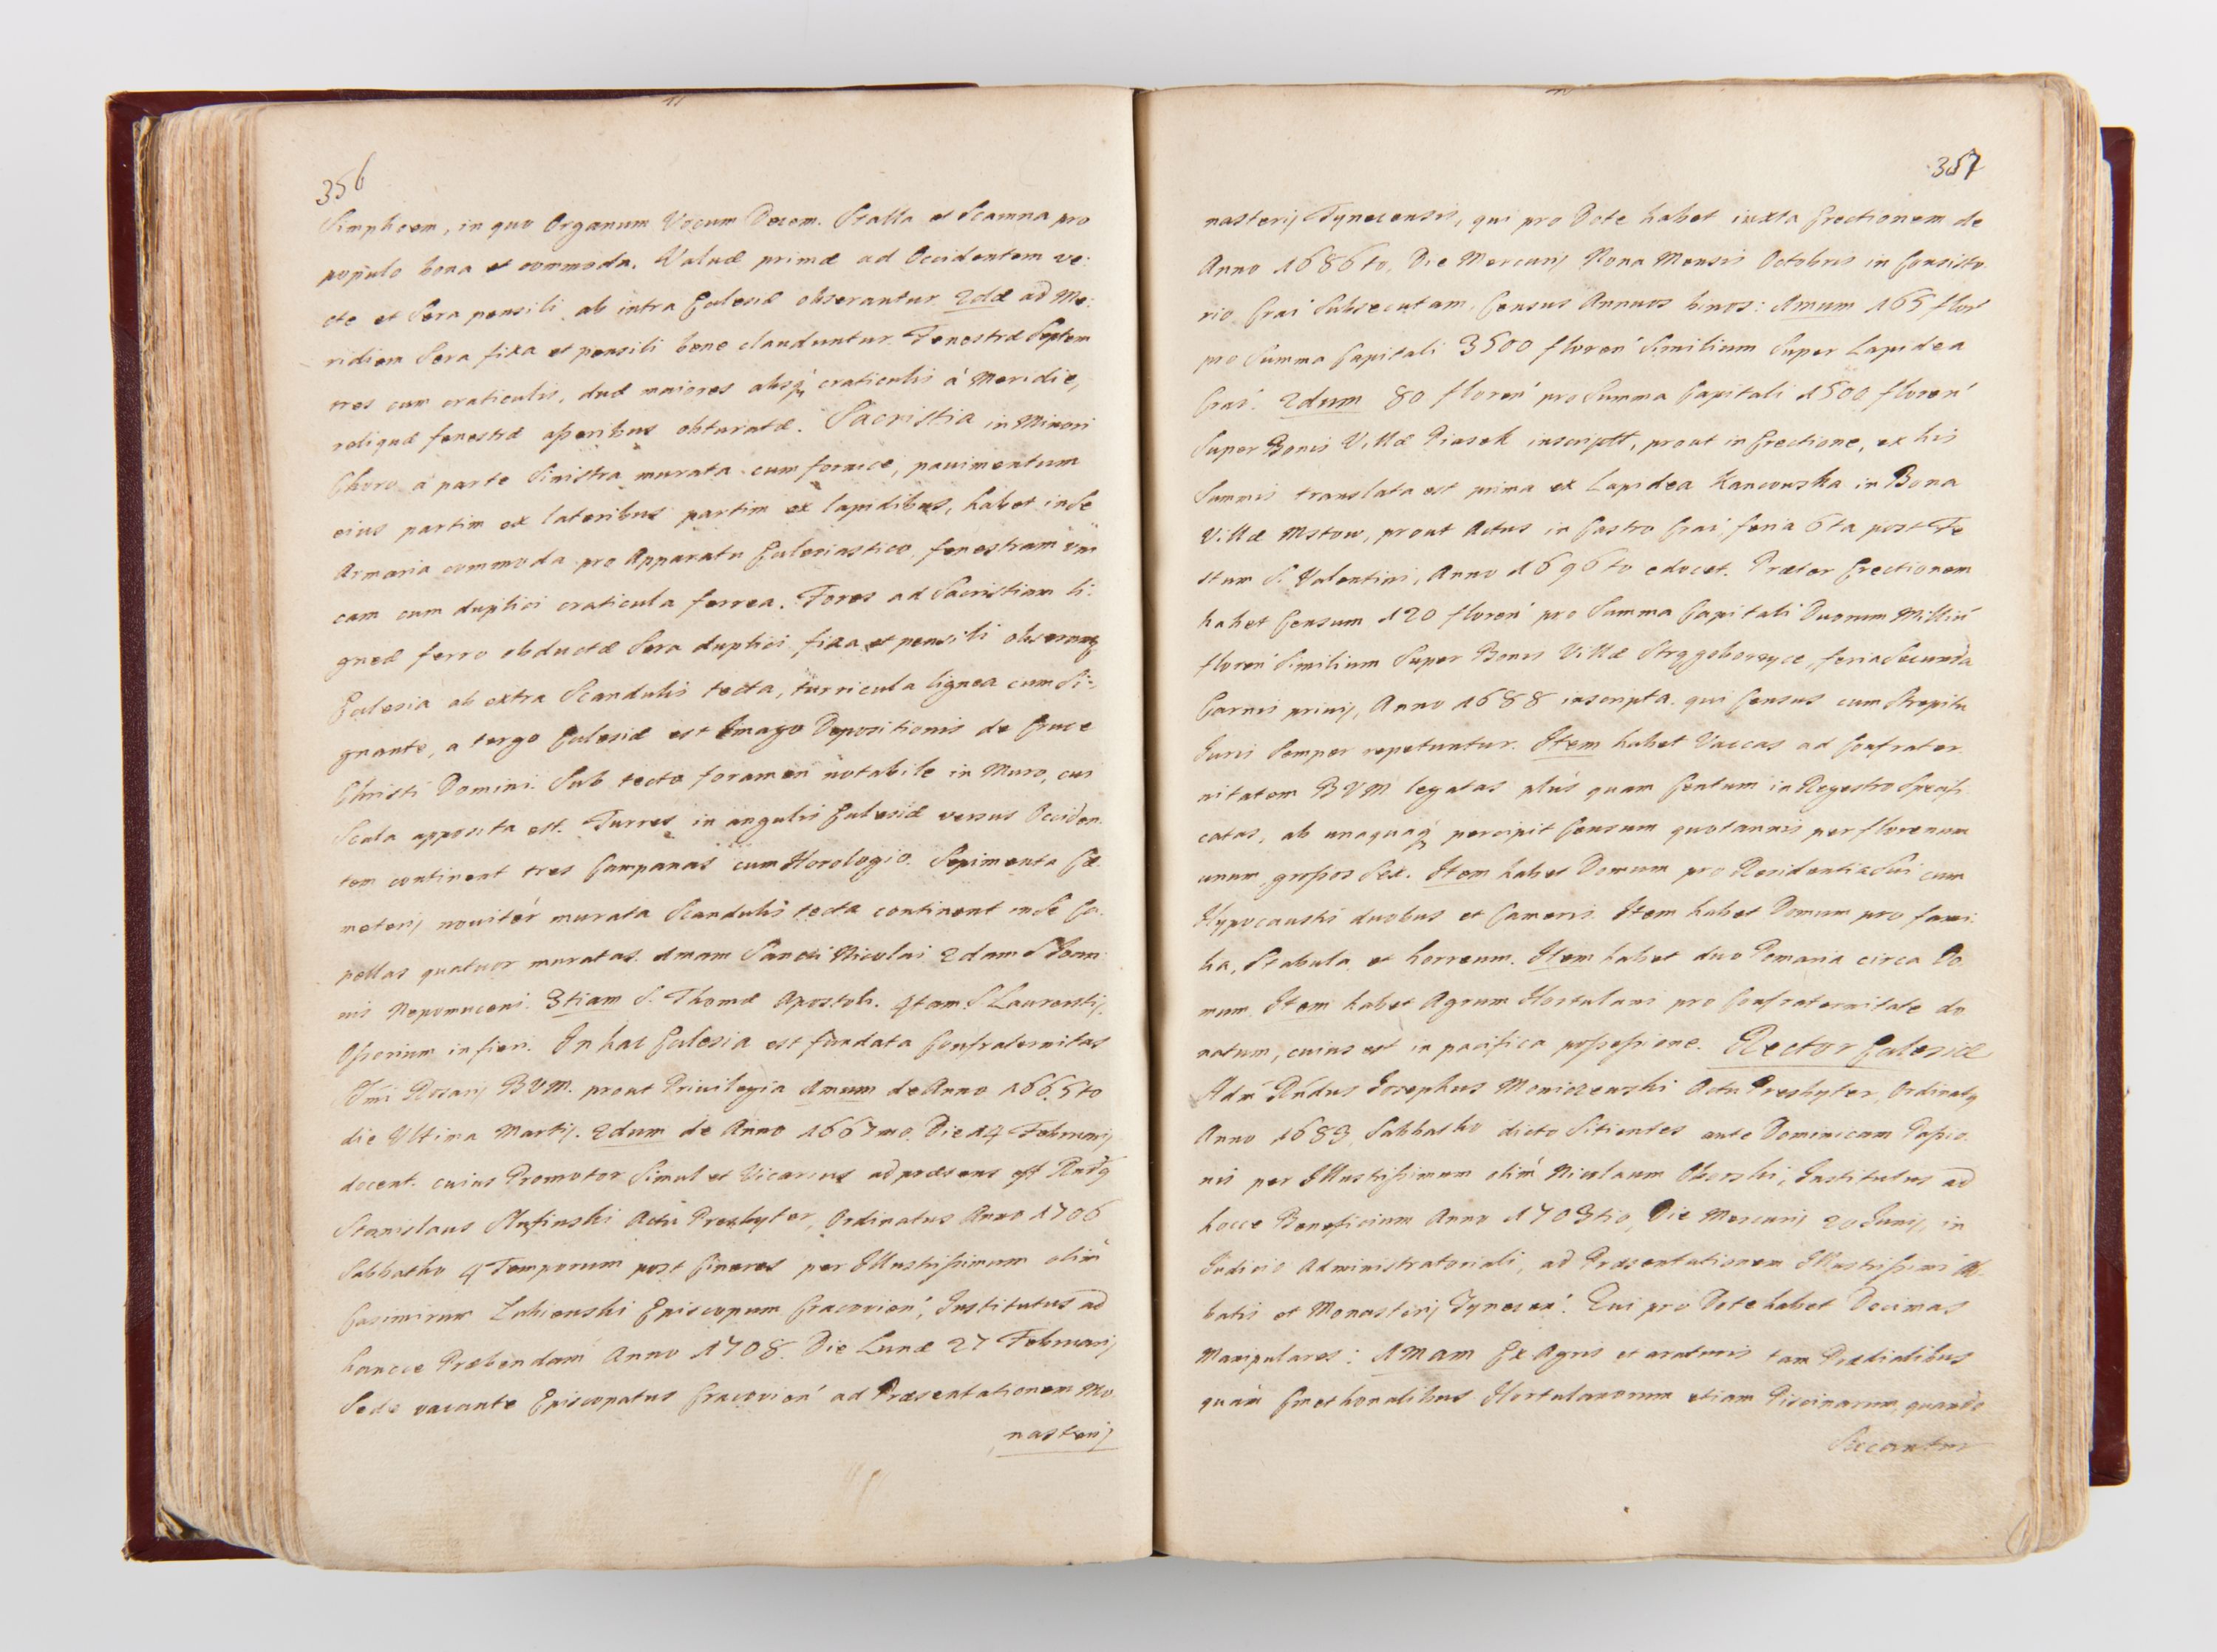 356
Simplicem, in quo Organum Vocum Decem. Stalla et Scamna pro
populo bona et commoda. Valuæ primæ ad Occidentem ve:
cte et Sera pensili ab intra Eulesiæ obserantur 2dæ ad Me:
ridiem Sera fixa et pensili bene clauduntur. Fenestræ Septem
tres cum craticulis, duæ maiores absq; craticulis á Meridie,
reliquæ fenestræ asseribus obturatæ. Sacristia in Minori
Choro á parte Sinistra murata cum fornice, pauimentum
eius partim ex lateribus partim ex lapidibus, habet in Se
Armaria commoda pro Apparatu Ecclesiastico, fenestram vni
cam cum duplici craticula ferrea. Fores ad Sacristiam li:
gneæ ferro obductæ Sera duplici, fixa et pensili
Ecclesia ab extra Scandulis tecta, turricula lignea cum Si:
gnante, a tergo Ecclesiæ est Imago Depositionis de Cruce
Christi Domini. Sub tecto foramen notabile in Muro, cui
Scala apposita est. Turres in angulis Ecclesiæ versus Occiden
tem continent tres Campanas cum Horologio. Sepimenta Cæ
meterij nouitér murata Scandulis tecta continent in Se Ca
pellas quatuor muratas. 1mam Sancti Nicolai 2dam S Joan
nis Nepomuceni. 3tiam S. Thomæ Apostoli. 4tam S. Laurentij.
Ossorium in fieri. In hac Ecclesia est fundata Confraternitas
Smi Rosarij BVM. prout Priuilegia 1mum de Anno 1665to
die Vltima Martij. 2dum de Anno 1667mo Die 14 Februarij
docent. cuius Promotor Simul et Vicarius ad præsens est
Stanislaus Actu Presbyter, Ordinatus Anno 1706
Sabbatho 4 Temporum post Cineres per Illustrissimum olim
Casimirum Łubienski Episcopum Cracovien', Institutus ad
hancce Præbendam Anno 1708. Die Lunæ 27 Februarij
Sede vacante Episcopatus Cracovien' ad Præsentationem Mo
nasterij
357
nasterij Tynecensis, qui pro Dote habet iuxta Erectionem de
Anno 1686to, Die Mercurij Nona Mensis Octobris in Consisto
rio Crai Subsecutam, Census Annuos binos: 1mum 165 flor'
pro Summa Capitali 3500 floren' Similium Super Lapidea
Cras'. 2dum 80 floren' pro Summa Capitali 1500 floren'
Super Bonis Villæ Piasek inscriptt, prout in Erectione, ex his
Summis translata est prima ex Lapidea Kancowska in Bona
Villæ Mstow, prout Actus in Castro Crai feria 6ta post Fe
stum S. Valentini, Anno 1696to edocet. Præter Erectionem
habet Censum 120 floren' pro Summa Capitali Duorum Milliu'
floren' Similium Super Bonis Villæ Strzgeborzyce, feria Secunda
Carnis priuij, Anno 1688 inscripta. qui Census cum Strepitu
Iuris Semper repetuntur. Item habet Vaccas ad Confrater
nitatem BVM legatas plus quam Centum in Regestro Specifi
catas, ab unaquaq; percipit Censum quotannis per florenum
unum grossos Sex. Item habet Domum pro Residentia Sui cum
Hypocaustis duobus et Cameris. Item habet Domum pro fami:
lia, Stabula, et horreum. Item habet duo Pomaria circa Do
mum. Item habet Agrum Hortulani pro Confraternitate do
natum, cuius est in pacifica possessione. Rector Ecclesiæ
Adm Rndus Josephus Actu Presbyter, Ordinatq
Anno 1683 Sabbatho dicto Sitientes ante Dominicam Passio
nis per Illustrissimum olim Nicolaum Oborski, Institutus ad
hocce Beneficium Anno 1703tio, Die Mercurij 20 Junij, in
Iudicio Administratoriali, ad Præsentationem Illustrissimi Ab
batis et Monasterij Tynecen'. Qui pro Dote habet Decimas
Manipulares: 1mam Ex Agris et araturis tam Prædialibus
quàm Cmethonalibus Hortulanorum etiam Piscinarum, quando
Siccantur